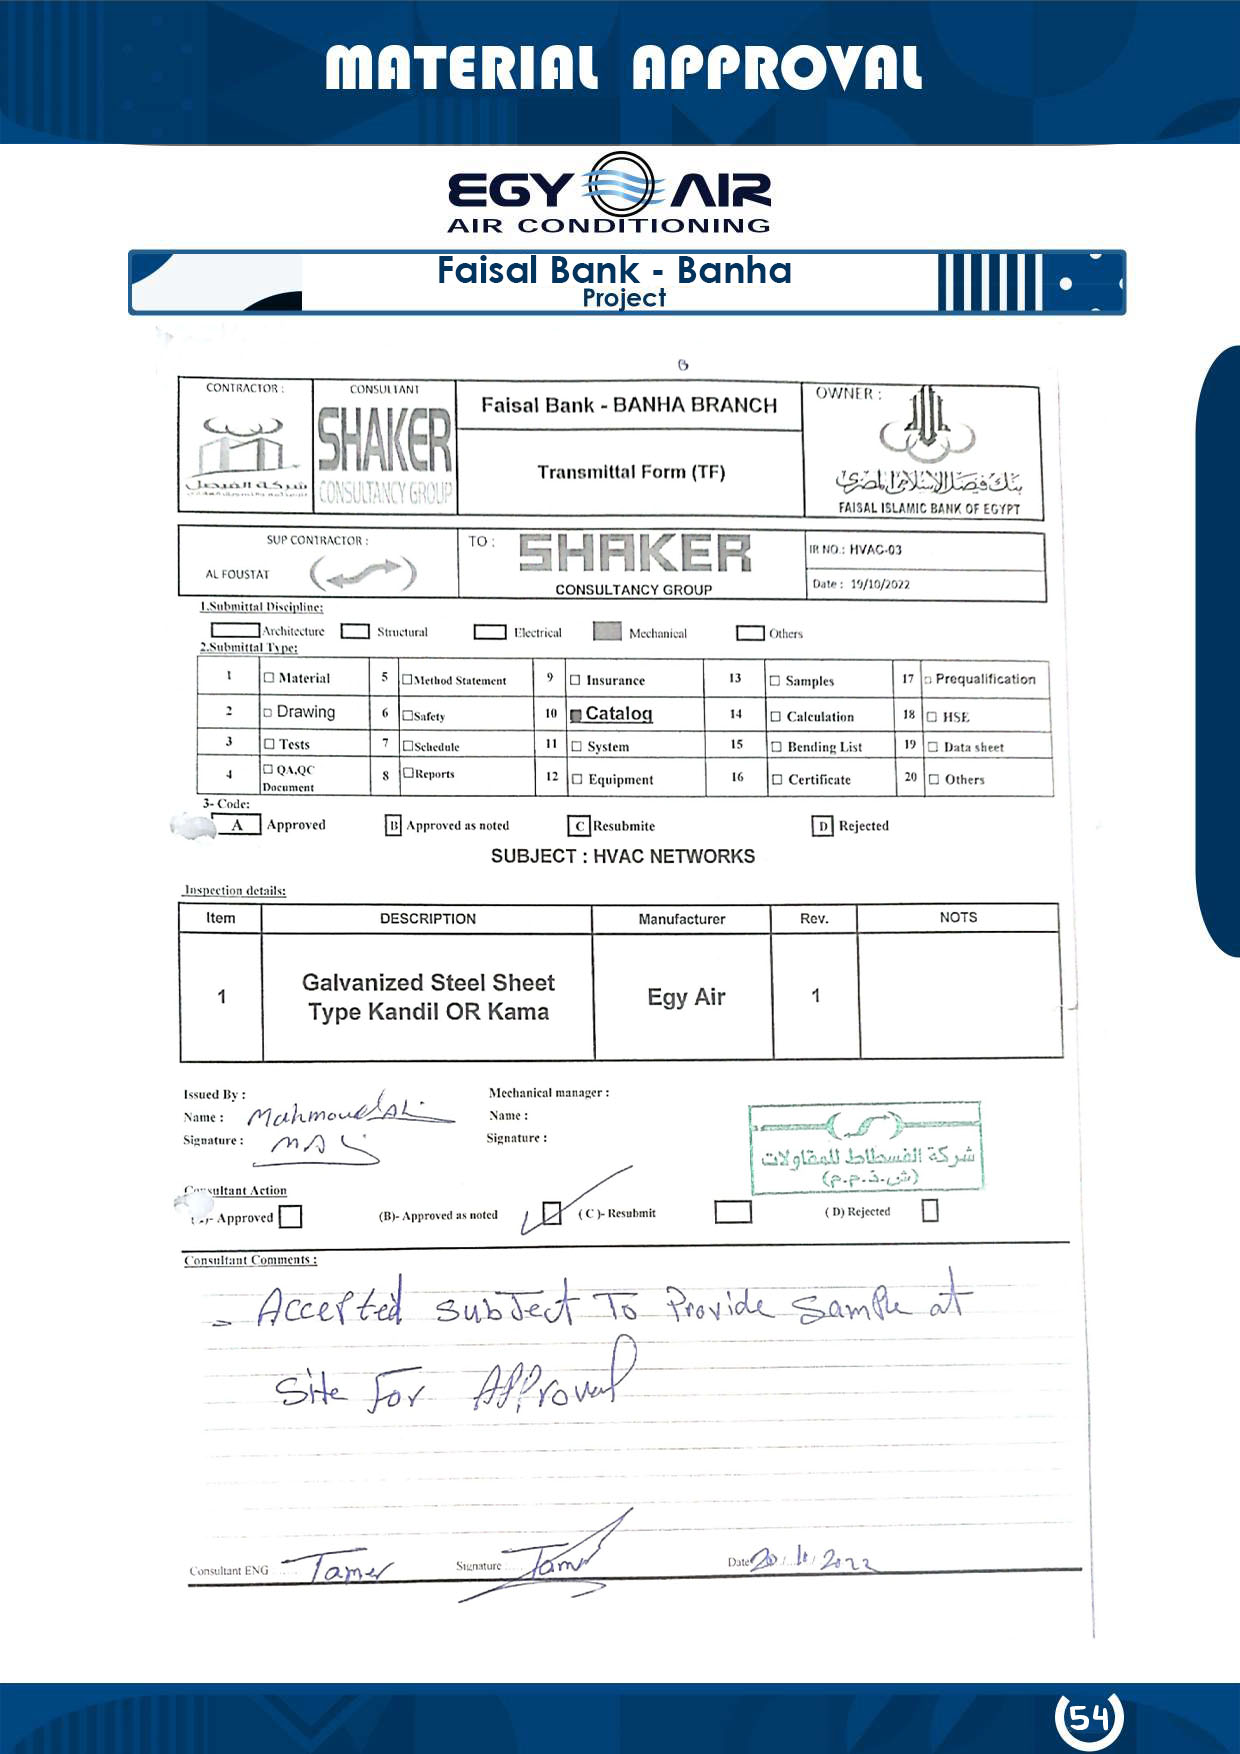 MATERIAL APPROVAL
EGY AIR
AIR CONDITIONING
Faisal Bank - Banha
Project
B
CONTRACTOR :
شركة الفيصل
CONSULTANT
SHAKER
CONSULTANCY GROUP
Faisal Bank - BANHA BRANCH
Transmittal Form (TF)
OWNER :
بنك فيصل الإسلامي المصري
FAISAL ISLAMIC BANK OF EGYPT
SUP CONTRACTOR :
AL FOUSTAT
TO :
SHAKER
CONSULTANCY GROUP
IR NO.: HVAC-03
Date : 19/10/2022
1.Submittal Discipline:
Architecture Structural Electrical Mechanical Others
2.Submittal Type:
1 Material 5 Method Statement 9 Insurance 13 Samples 17 Prequalification
2 Drawing 6 Safety 10 Catalog 14 Calculation 18 HSE
3 Tests 7 Schedule 11 System 15 Bending List 19 Data sheet
4 QA,QC Document 8 Reports 12 Equipment 16 Certificate 20 Others
3- Code:
A Approved B Approved as noted C Resubmite D Rejected
SUBJECT : HVAC NETWORKS
Inspection details:
Item DESCRIPTION Manufacturer Rev. NOTS
1 Galvanized Steel Sheet
Type Kandil OR Kama
Egy Air 1
Issued By :
Name : Mahmoud Ali
Signature :
Mechanical manager :
Name :
Signature :
شركة الفسطاط للمقاولات
(ش.ذ.م.م)
Consultant Action
- Approved (B)- Approved as noted (C )- Resubmit ( D) Rejected
Consultant Comments :
- Accepted subject To Provide Sample at
Site For Approval
Consultant ENG Tamer Signature Tamer Date 20/10/2022
54